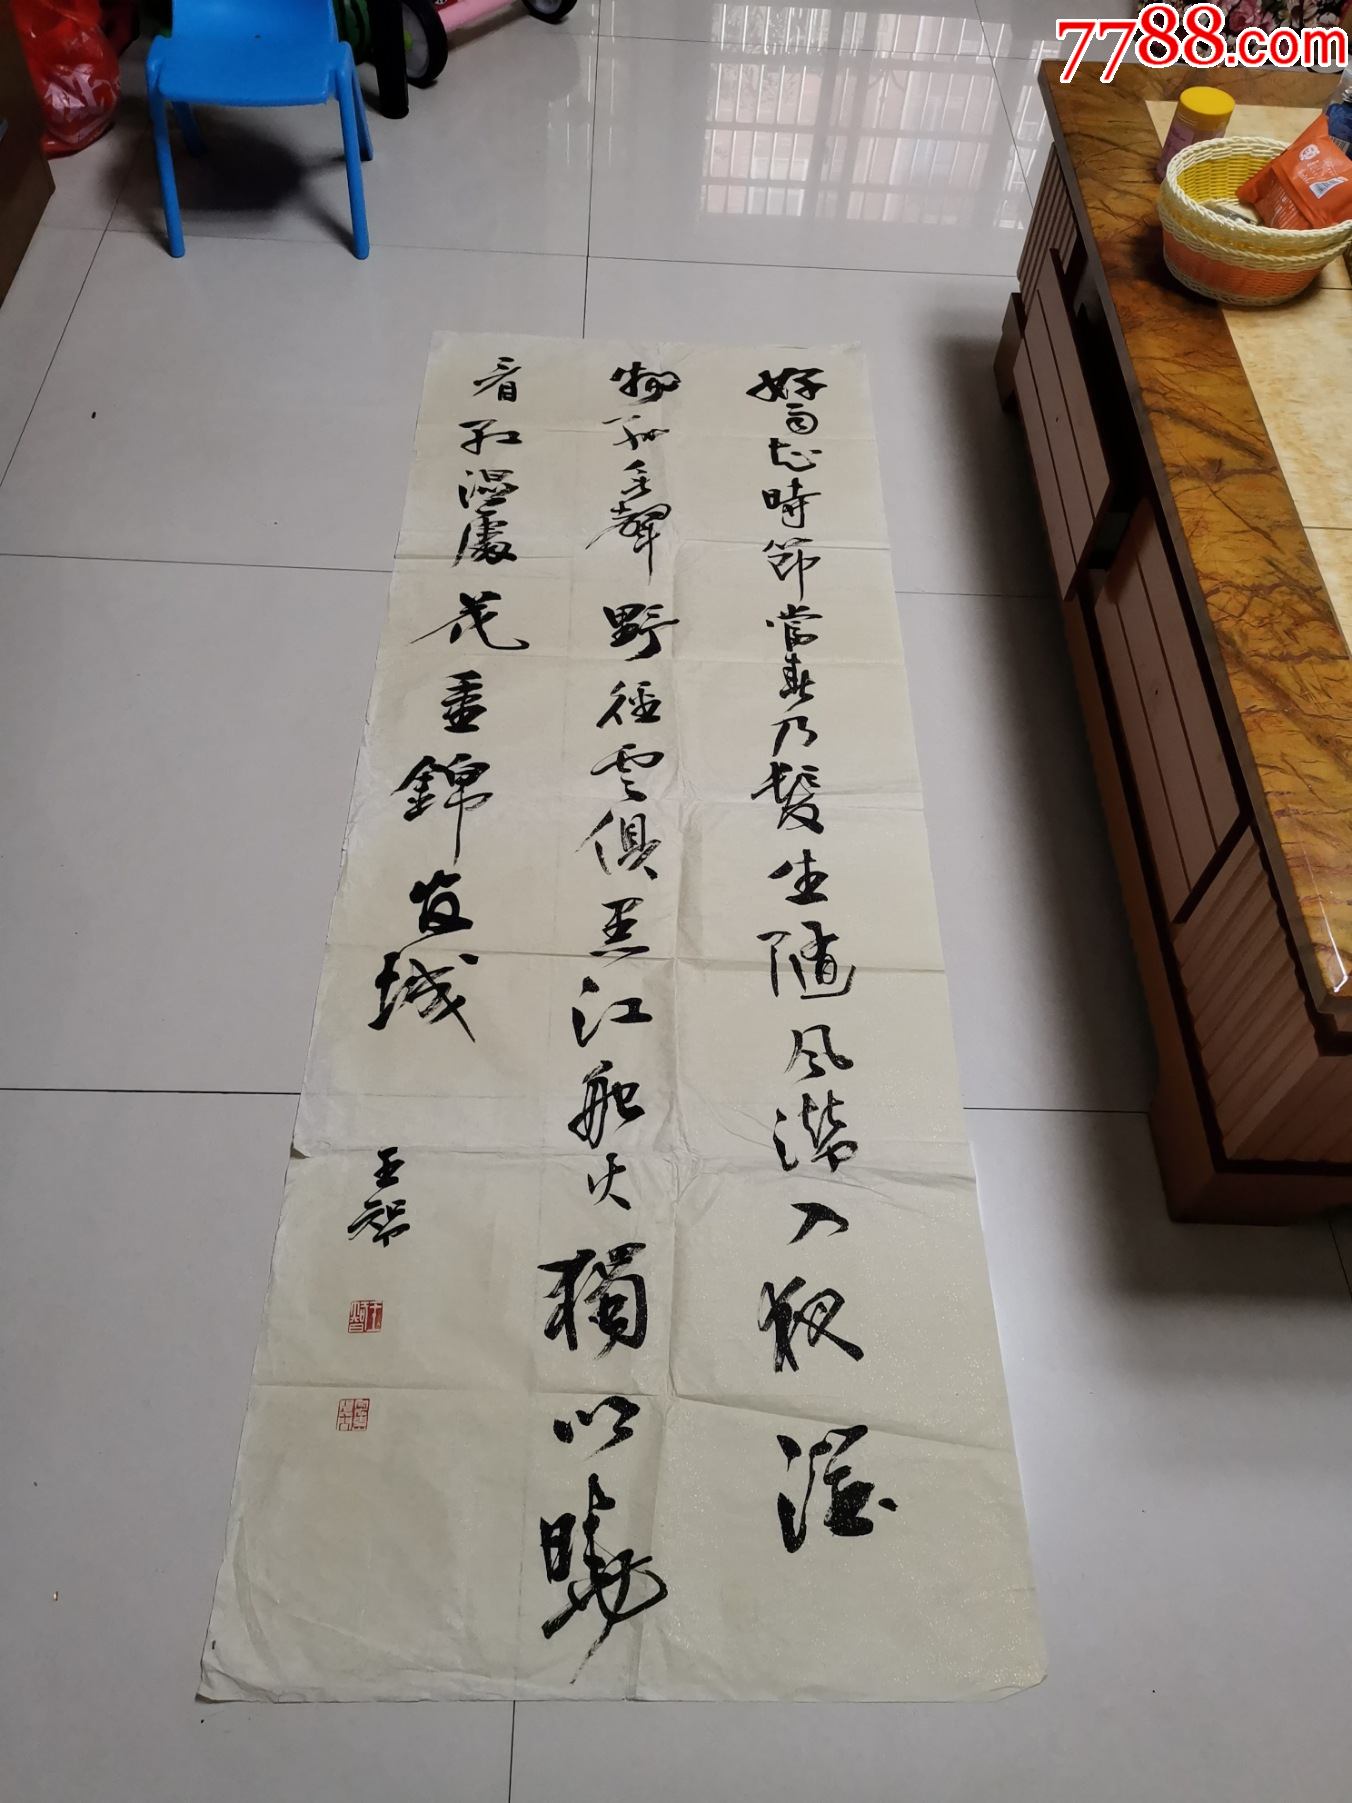 好雨知時節當春乃髮生隨風潛入夜潤
物細無聲野徑雲俱黑江船火獨明曉
看紅濕處花重錦官城
王智
7788.com